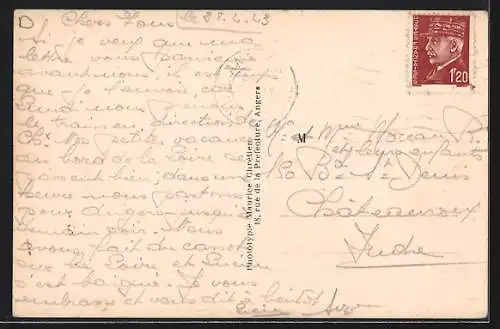 Chers Tous le 28.4.43
Si je veux que ma
lettre vous parvienne
avant nous, il est temps
que je l'envoie, car
Lundi nous prenons
le train en direction de
Ch. Nos petites vacances
au bord de la Loire se
passent bien, dans une
heure nous partons
pour Angers jusqu'à
demain soir. Nous
avons fait du canot
sur la Loire et Lucien
s'est baigné. Je vous
embrasse et vous dit à bientôt
Phototypie Maurice Chrétien
18, rue de la Préfecture, Angers
M et Mme
et leurs enfants
Bd St Denis
Châteauroux
Indre
1F20